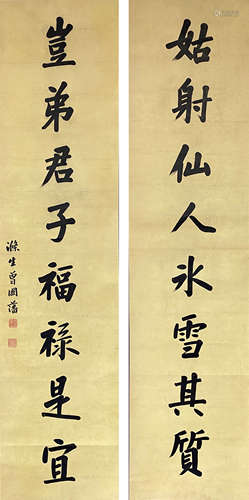 姑射仙人氷雪其質
豈弟君子福祿是宜
滌生曾國藩